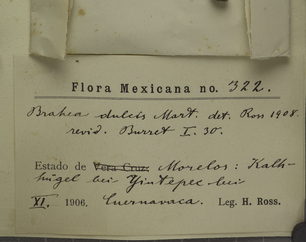 Flora Mexicana no. 322.
Brahea dulcis Mart. det. Ross 1908.
revid. Burret I. 30.
Estado de Vera Cruz: Morelos: Kalk-
hügel bei Yintepec bei
XI. 1906. Cuernavaca. Leg. H. Ross.